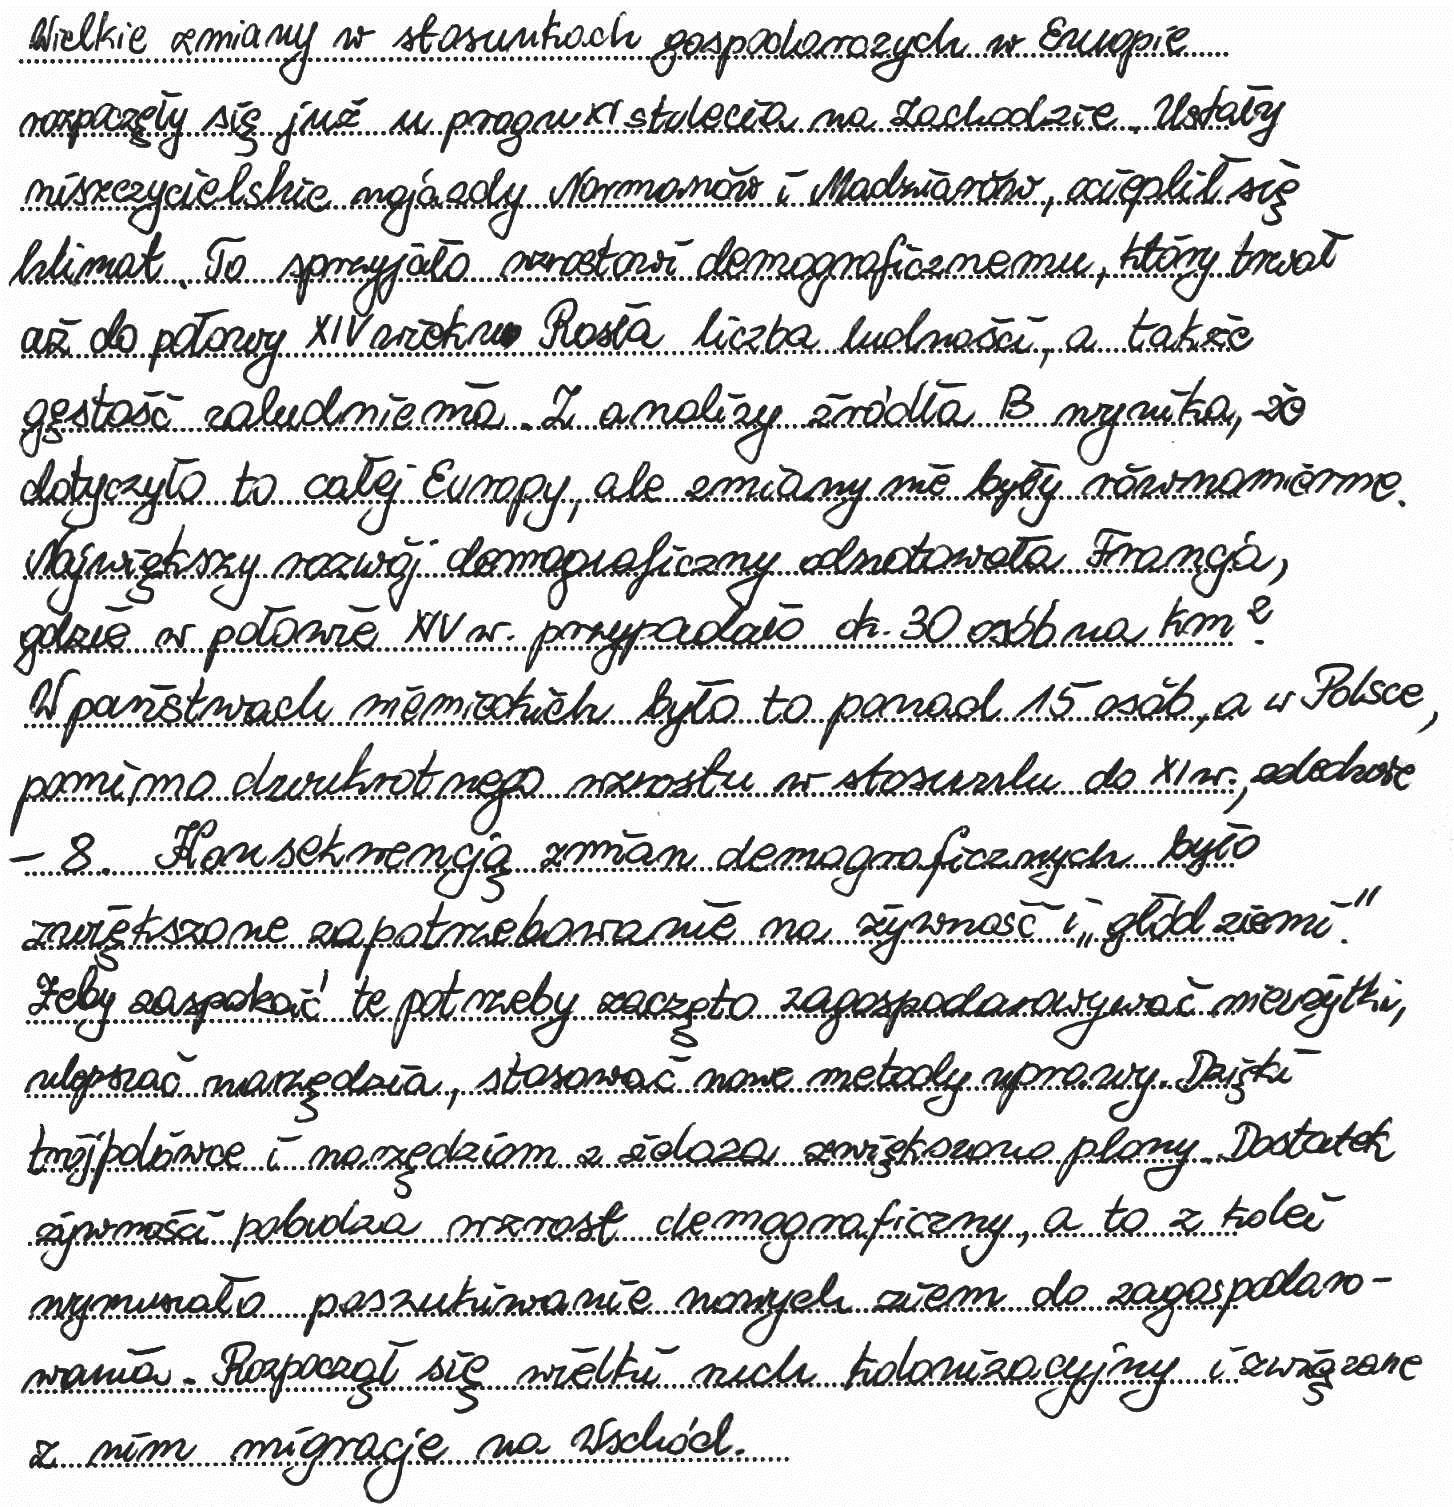 Wielkie zmiany w stosunkach gospodarczych w Europie
rozpoczęły się już u progu XI stulecia na Zachodzie. Ustały
niszczycielskie najazdy Normanów i Madziarów, ocieplił się
klimat. To sprzyjało wzrostowi demograficznemu, który trwał
aż do połowy XIV wieku. Rosła liczba ludności, a także
gęstość zaludnienia. Z analizy źródła B wynika, że
dotyczyło to całej Europy, ale zmiany nie były równomierne.
Największy rozwój demograficzny odnotowała Francja,
gdzie w połowie XIV w. przypadało ok. 30 osób na km².
W państwach niemieckich było to ponad 15 osób, a w Polsce,
pomimo dwukrotnego wzrostu w stosunku do XI w., zaledwie
– 8. Konsekwencją zmian demograficznych było
zwiększone zapotrzebowanie na żywność i „głód ziemi".
Żeby zaspokoić te potrzeby zaczęto zagospodarowywać nieużytki,
ulepszać narzędzia, stosować nowe metody uprawy. Dzięki
trójpolówce i narzędziom z żelaza zwiększono plony. Dostatek
żywności pobudzał wzrost demograficzny, a to z kolei
wymusiło poszukiwanie nowych ziem do zagospodaro-
wania. Rozpoczął się wielki ruch kolonizacyjny i związane
z nim migracje na Wschód.